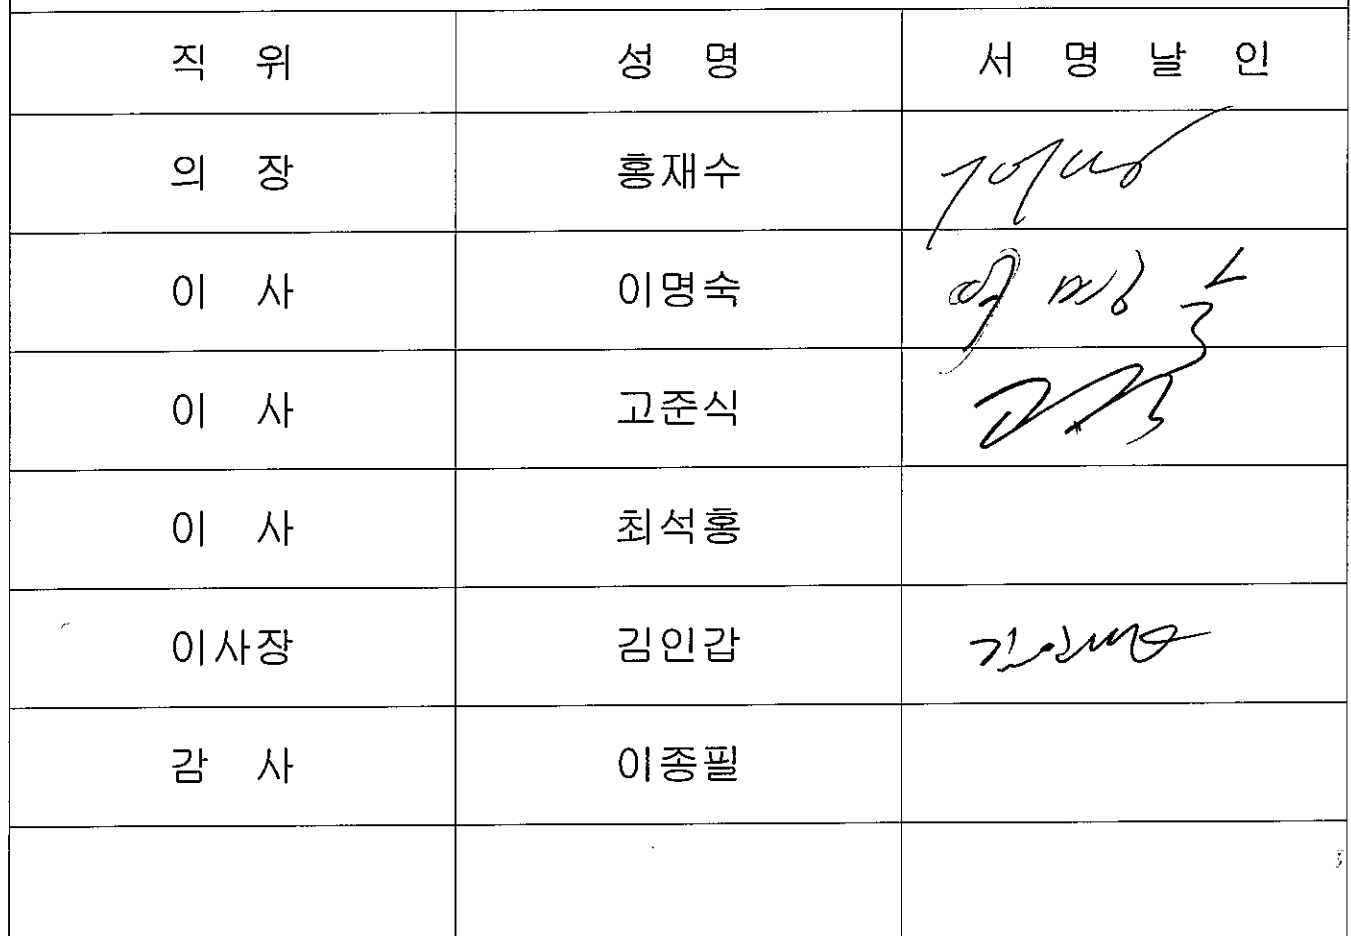 직 위 성 명 서 명 날 인
의 장 홍재수
이 사 이명숙
이 사 고준식
이 사 최석홍
이사장 김인갑
감 사 이종필